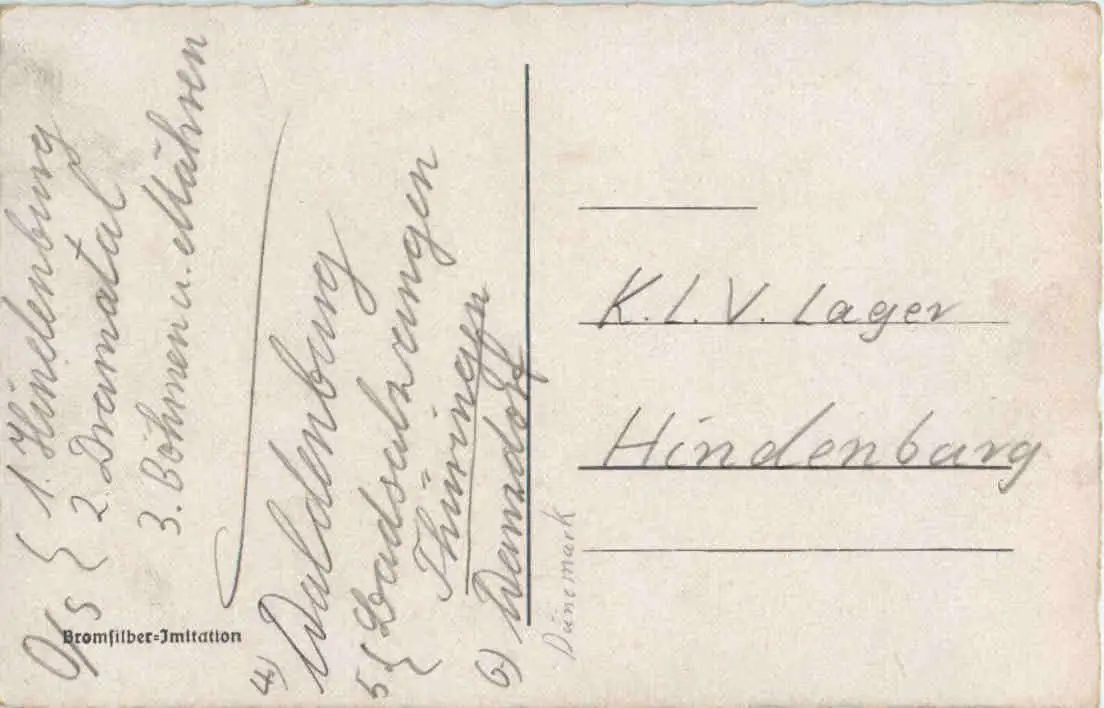 O/S
{ 1. Hindenburg
{ 2. Dramatal
3. Böhmen u. Mähren
4) Waldenburg
5 { Badsalzungen
Thüringen
6)
Dänemark
Bromsilber-Imitation
K. L. V. Lager
Hindenburg